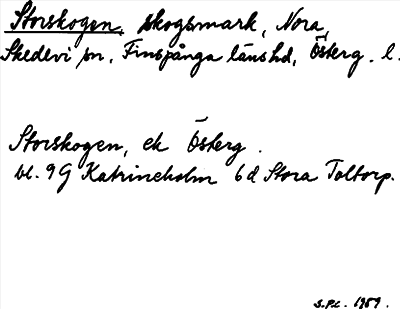 Storskogen, skogsmark, Nora,
Skedevi sn, Finspånga länshd, Österg. l.
Storskogen, ek Österg.
bl. 9 G Katrineholm 6 d Stora Toltorp.
S.P.C. 1959.